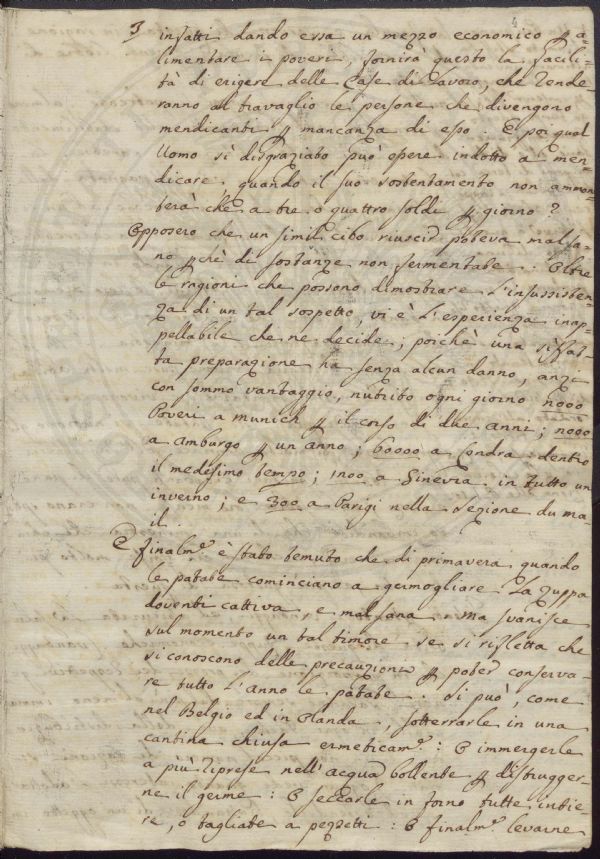 3
infatti dando essa un mezzo economico p a-
limentare i poveri, fornirà questo la facili-
tà di erigere delle Case di Lavoro, che rende-
ranno al travaglio le persone che divengono
mendicanti p mancanza di esso. E poi qual
Uomo sì disgraziato può essere indotto a men-
dicare, quando il suo sostentamento non ammon-
terà che a tre o quattro soldi p giorno?
Opposero che un simil cibo riuscir poteva malsa-
no pchè di sostanze non fermentate. Oltre
le ragioni che possono dimostrare l'insussisten-
za di un tal sospetto, vi è l'esperienza inap-
pellabile che ne decide; poichè una siffat-
ta preparazione ha senza alcun danno, anzi
con sommo vantaggio, nutrito ogni giorno
Poveri a Munich p il corso di due anni;
a Amburgo p un anno; 60000 a Londra dentro
il medesimo tempo; a Ginevra in tutto un
inverno; e 300 a Parigi nella Sezione du ma-
il.
E finalm.e è stato temuto che di primavera quando
le patate cominciano a germogliare la zuppa
doventi cattiva, e malsana. Ma svanisce
sul momento un tal timore se si rifletta che
si conoscono delle precauzioni p poter conserva-
re tutto l'anno le patate. Si può, come
nel Belgio ed in Olanda, sotterrarle in una
cantina chiusa ermeticam.e: O immergerle
a più riprese nell'acqua bollente p distrugger-
ne il germe: O seccarle in forno tutte intie-
re, o tagliate a pezzetti: O finalm.e levarne